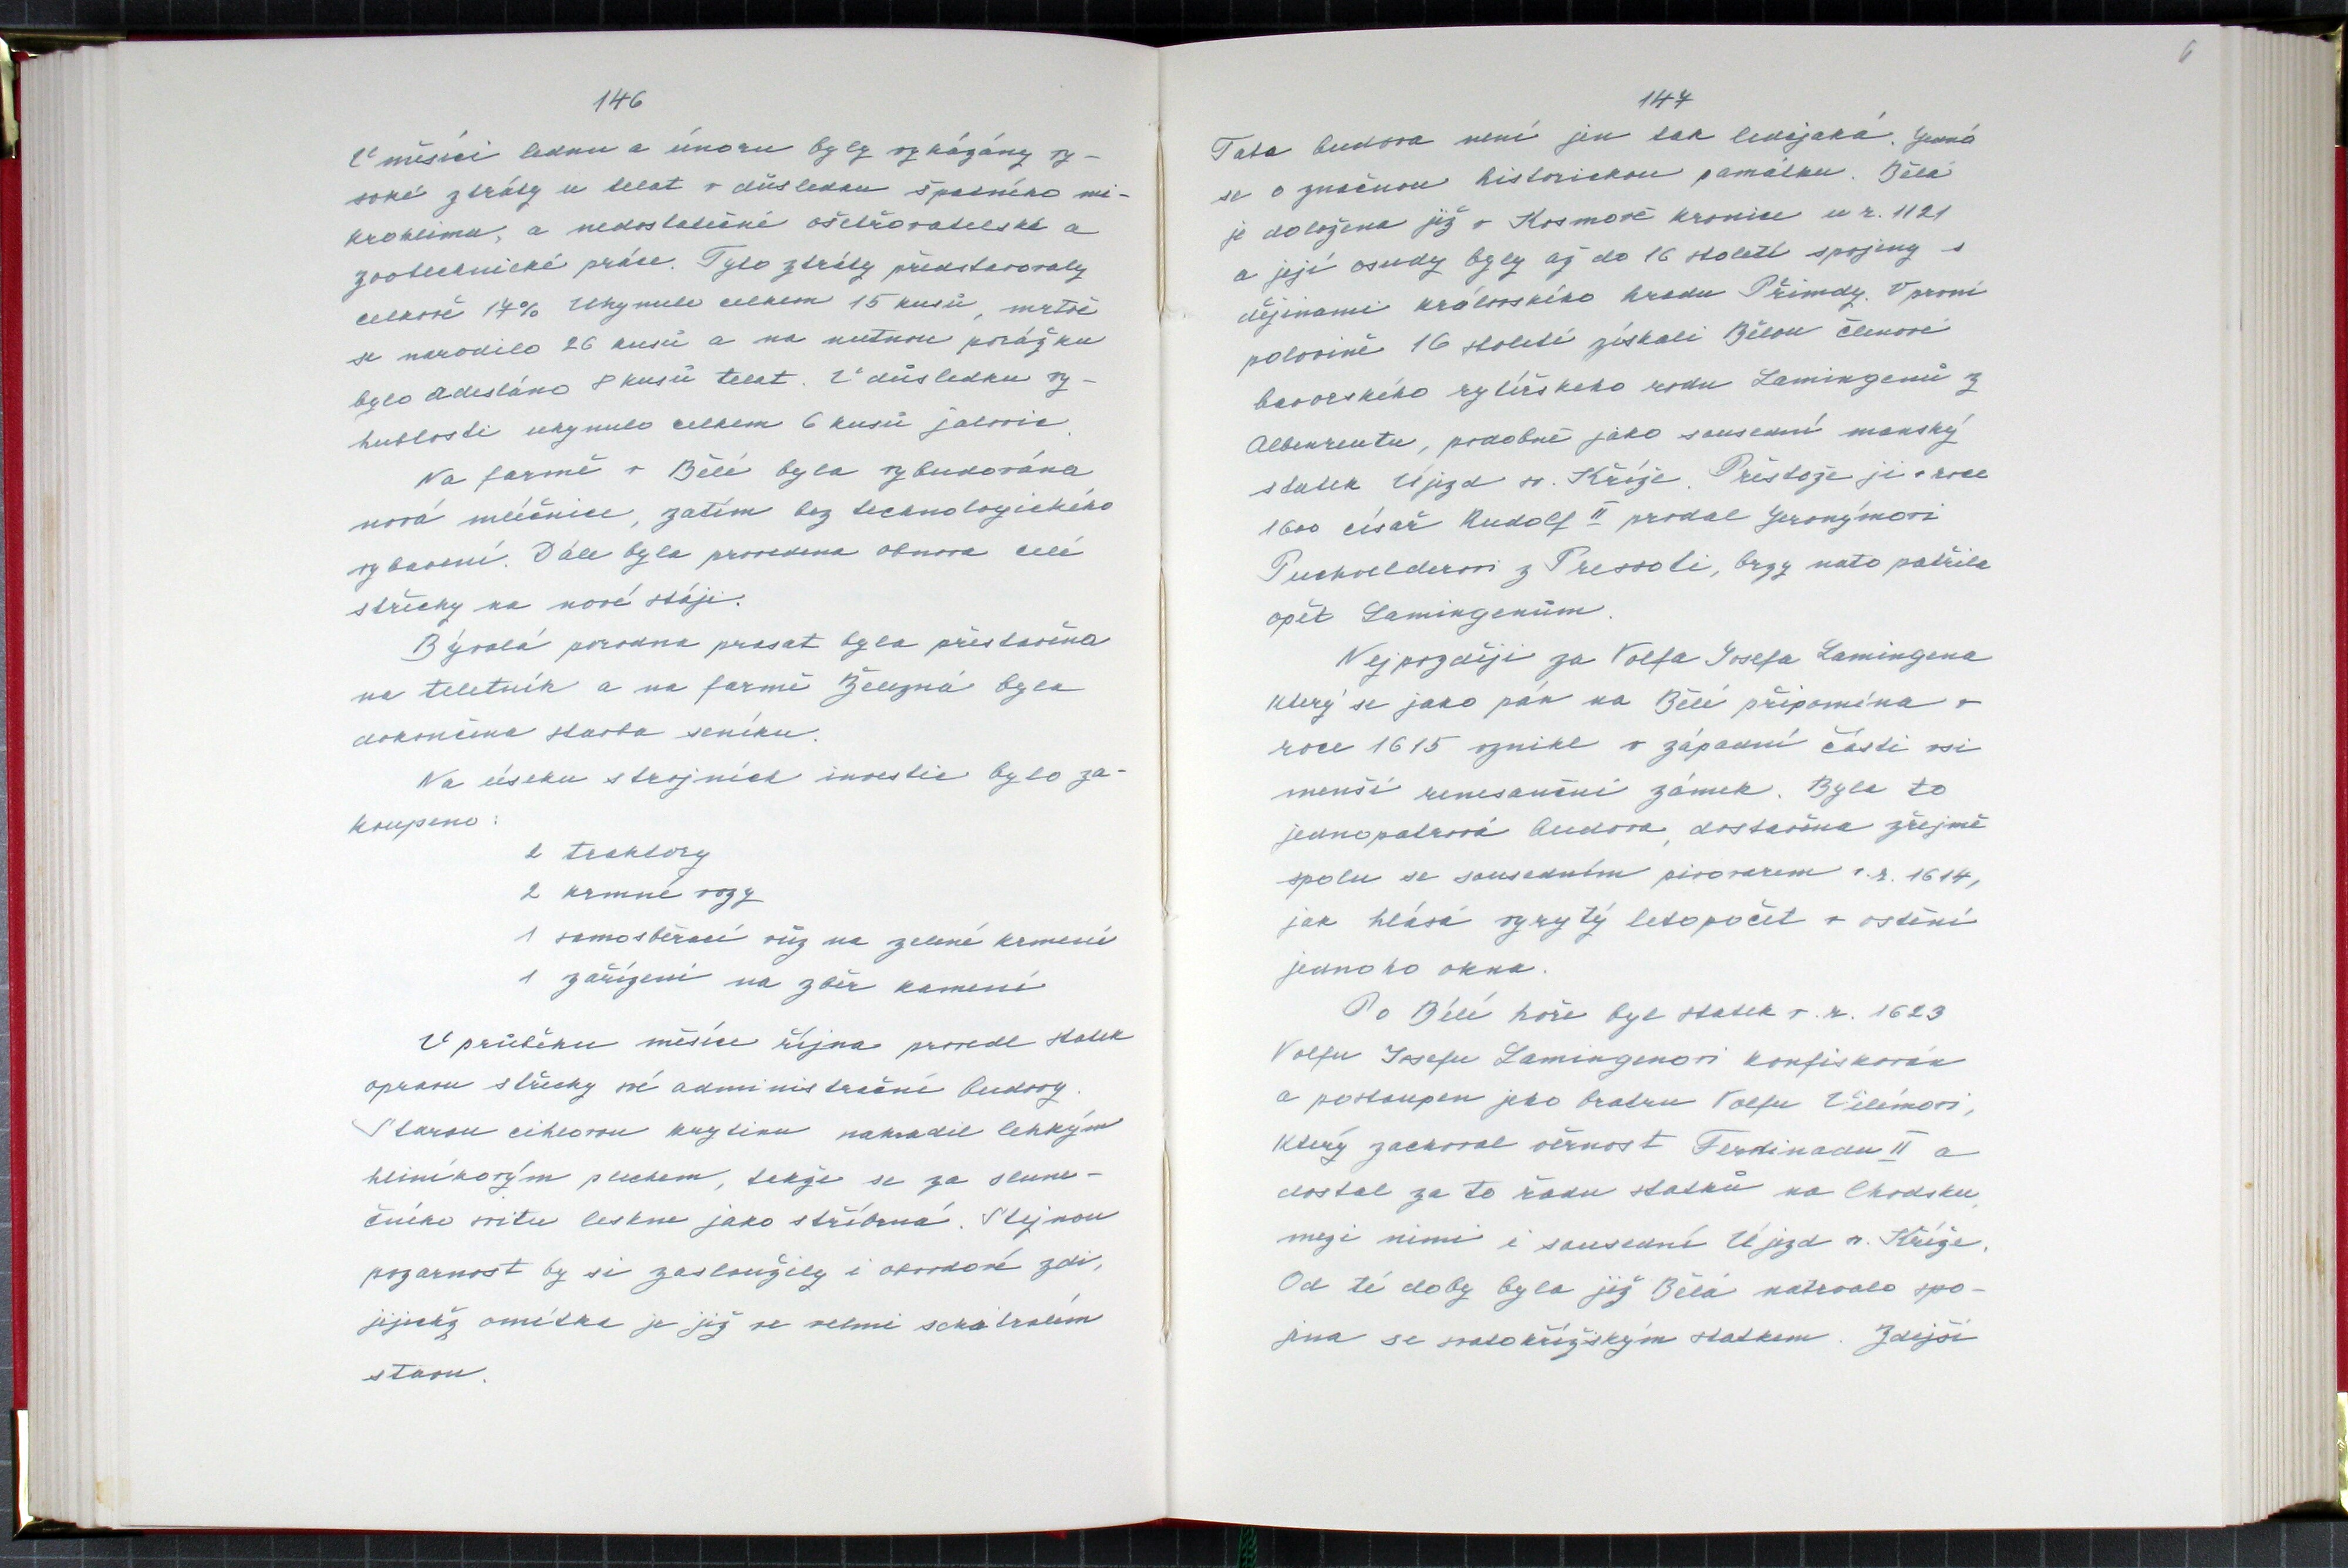 146
V měsíci lednu a únoru byly vykázány vy-
soké ztráty u telat v důsledku špatného mi-
kroklima, a nedostatečné ošetřovatelské a
zootechnické práce. Tyto ztráty představovaly
celkově 17% Uhynulo celkem 15 kusů, mrtvě
se narodilo 26 kusů a na nutnou porážku
bylo odesláno 8 kusů telat. V důsledku vy-
hublosti uhynulo celkem 6 kusů jalovic.
Na farmě v Bělé byla vybudována
nová mléčnice, zatím bez technologického
vybavení. Dále byla provedena obnova celé
střechy na nové stáji.
Bývalá porodna prasat byla přestavěna
na teletník a na farmě Železná byla
dokončena stavba seníku.
Na úseku strojních investic bylo za-
koupeno:
2 traktory
2 krmné vozy
1 samosběrací vůz na zelené krmení
1 zařízení na zběr kamení
V průběhu měsíce října provedl statek
opravu střechy své administrační budovy.
Starou cihlovou krytinu nahradil lehkým
hliníkovým plechem, takže se za slune-
čního svitu leskne jako stříbrná. Stejnou
pozornost by si zasloužily i obvodové zdi,
jejichž omítka je již ve velmi schátralém
stavu.
147
6
Tato budova není jen tak ledajaká. Jedná
se o značnou historickou památku. Bělá
je doložena již v Kosmově kronice u r. 1121
a její osudy byly až do 16 století spojeny s
dějinami královského hradu Přimdy. V první
polovině 16 století získali Bělou členové
bavorského rytířského rodu Lamingenů z
Albenreutu, podobně jako sousední manský
statek Újezd sv. Kříže. Přestože ji v roce
1600 císař Rudolf II prodal Jeronýmovi
Puchvelderovi z Pressoti, brzy nato patřila
opět Lamingenům.
Nejpozději za Volfa Josefa Lamingena
který se jako pán na Bělé připomíná v
roce 1615 vznikl v západní části vsi
menší renesanční zámek. Byla to
jednopatrová budova, dostavěna zřejmě
spolu se sousedním pivovarem v.r. 1614,
jak hlásá vyrytý letopočet v ostění
jednoho okna.
Po Bílé hoře byl statek v.r. 1623
Volfu Josefu Lamingenovi konfiskován
a postoupen jeho bratru Volfu Vilémovi,
který zachoval věrnost Ferdinadu II a
dostal za to řadu statků na Chodsku,
mezi nimi i sousední Újezd sv. Kříže.
Od té doby byla již Bělá natrvalo spo-
jena se svatokřížským statkem. Zdejší